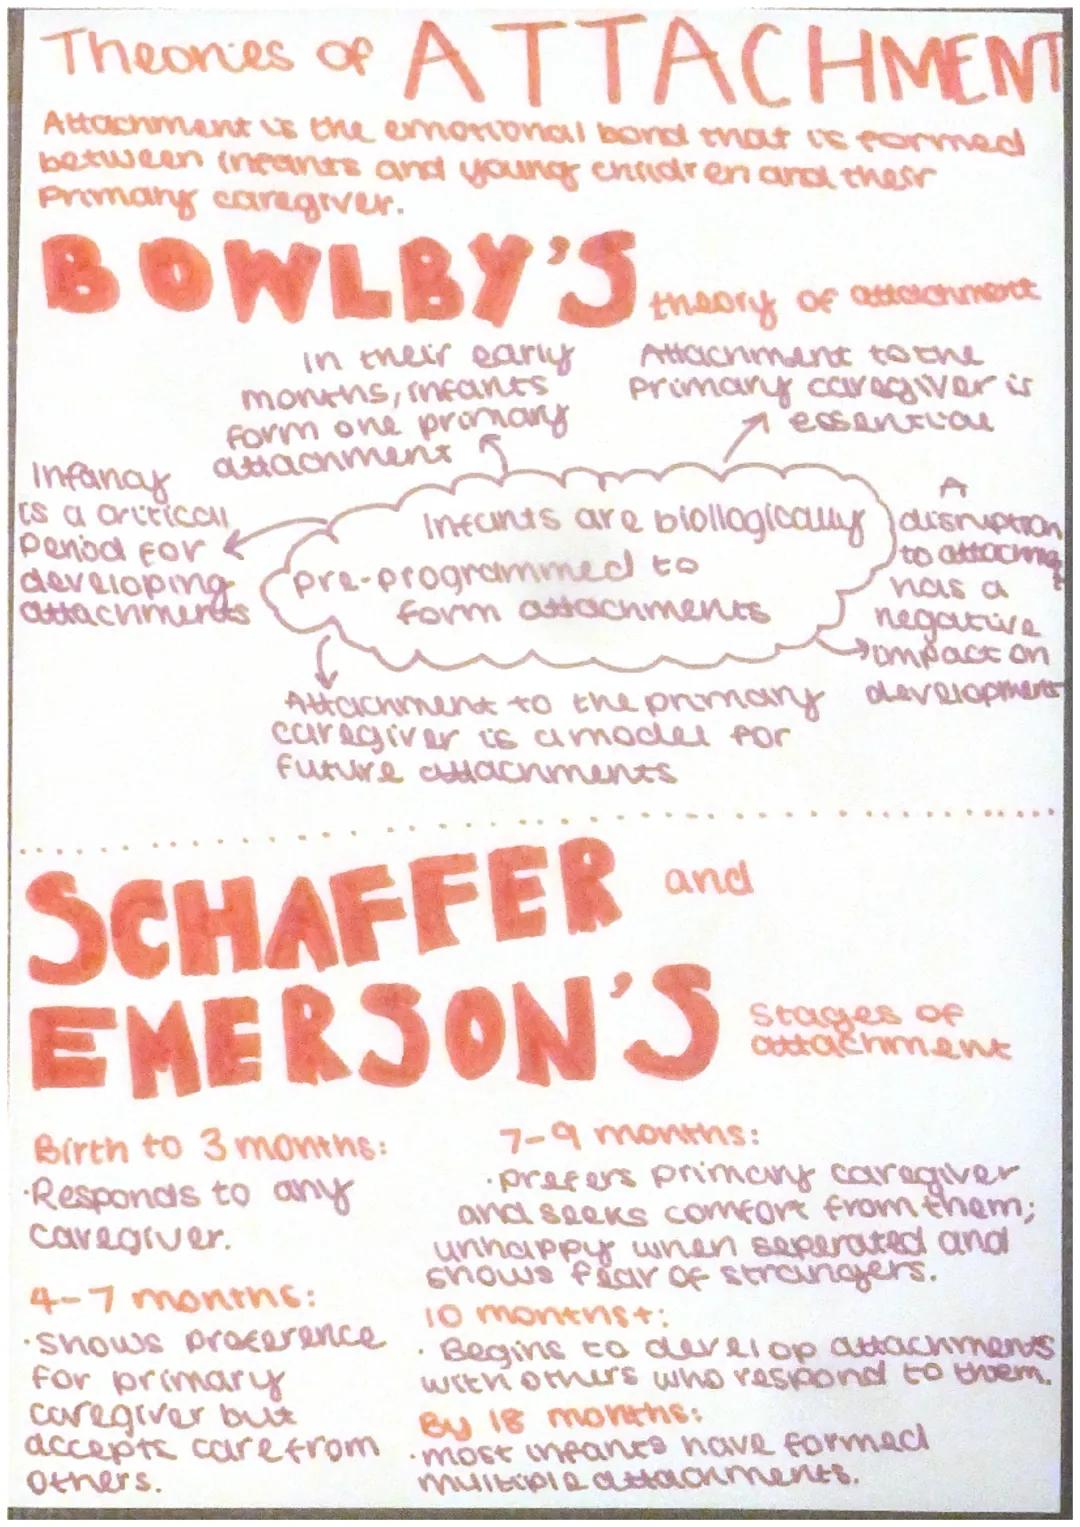 Theories of ATTACHMENT
Attachment is the emotional bond that is formed
between infants and young children and their
Primary caregiver.
BOWLBY'S theory of attachment
In their early
months, infants
form one primary
attachment
Attachment to the
primary caregiver is
essential
Infancy
is a critical
period for
developing
attachments
Infants are biollogically
pre-programmed to
form attachments
A
disruption
to
has a
negative
impact on
development
Attachment to the primary
caregiver is a model for
future attachments
SCHAFFER and
EMERSON'S Stages of
attachment
Birth to 3 months:
· Responds to any
caregiver.
4-7 months:
· shows preference
for primary
caregiver but
accepts care from
others.
7-9 months:
· prefers primary caregiver
and seeks comfort from them;
unhappy when seperated and
shows fear of strangers.
10 months+:
· Begins to develop attachments
with others who respond to them.
By 18 months:
· most infants have formed
multiple attachments.